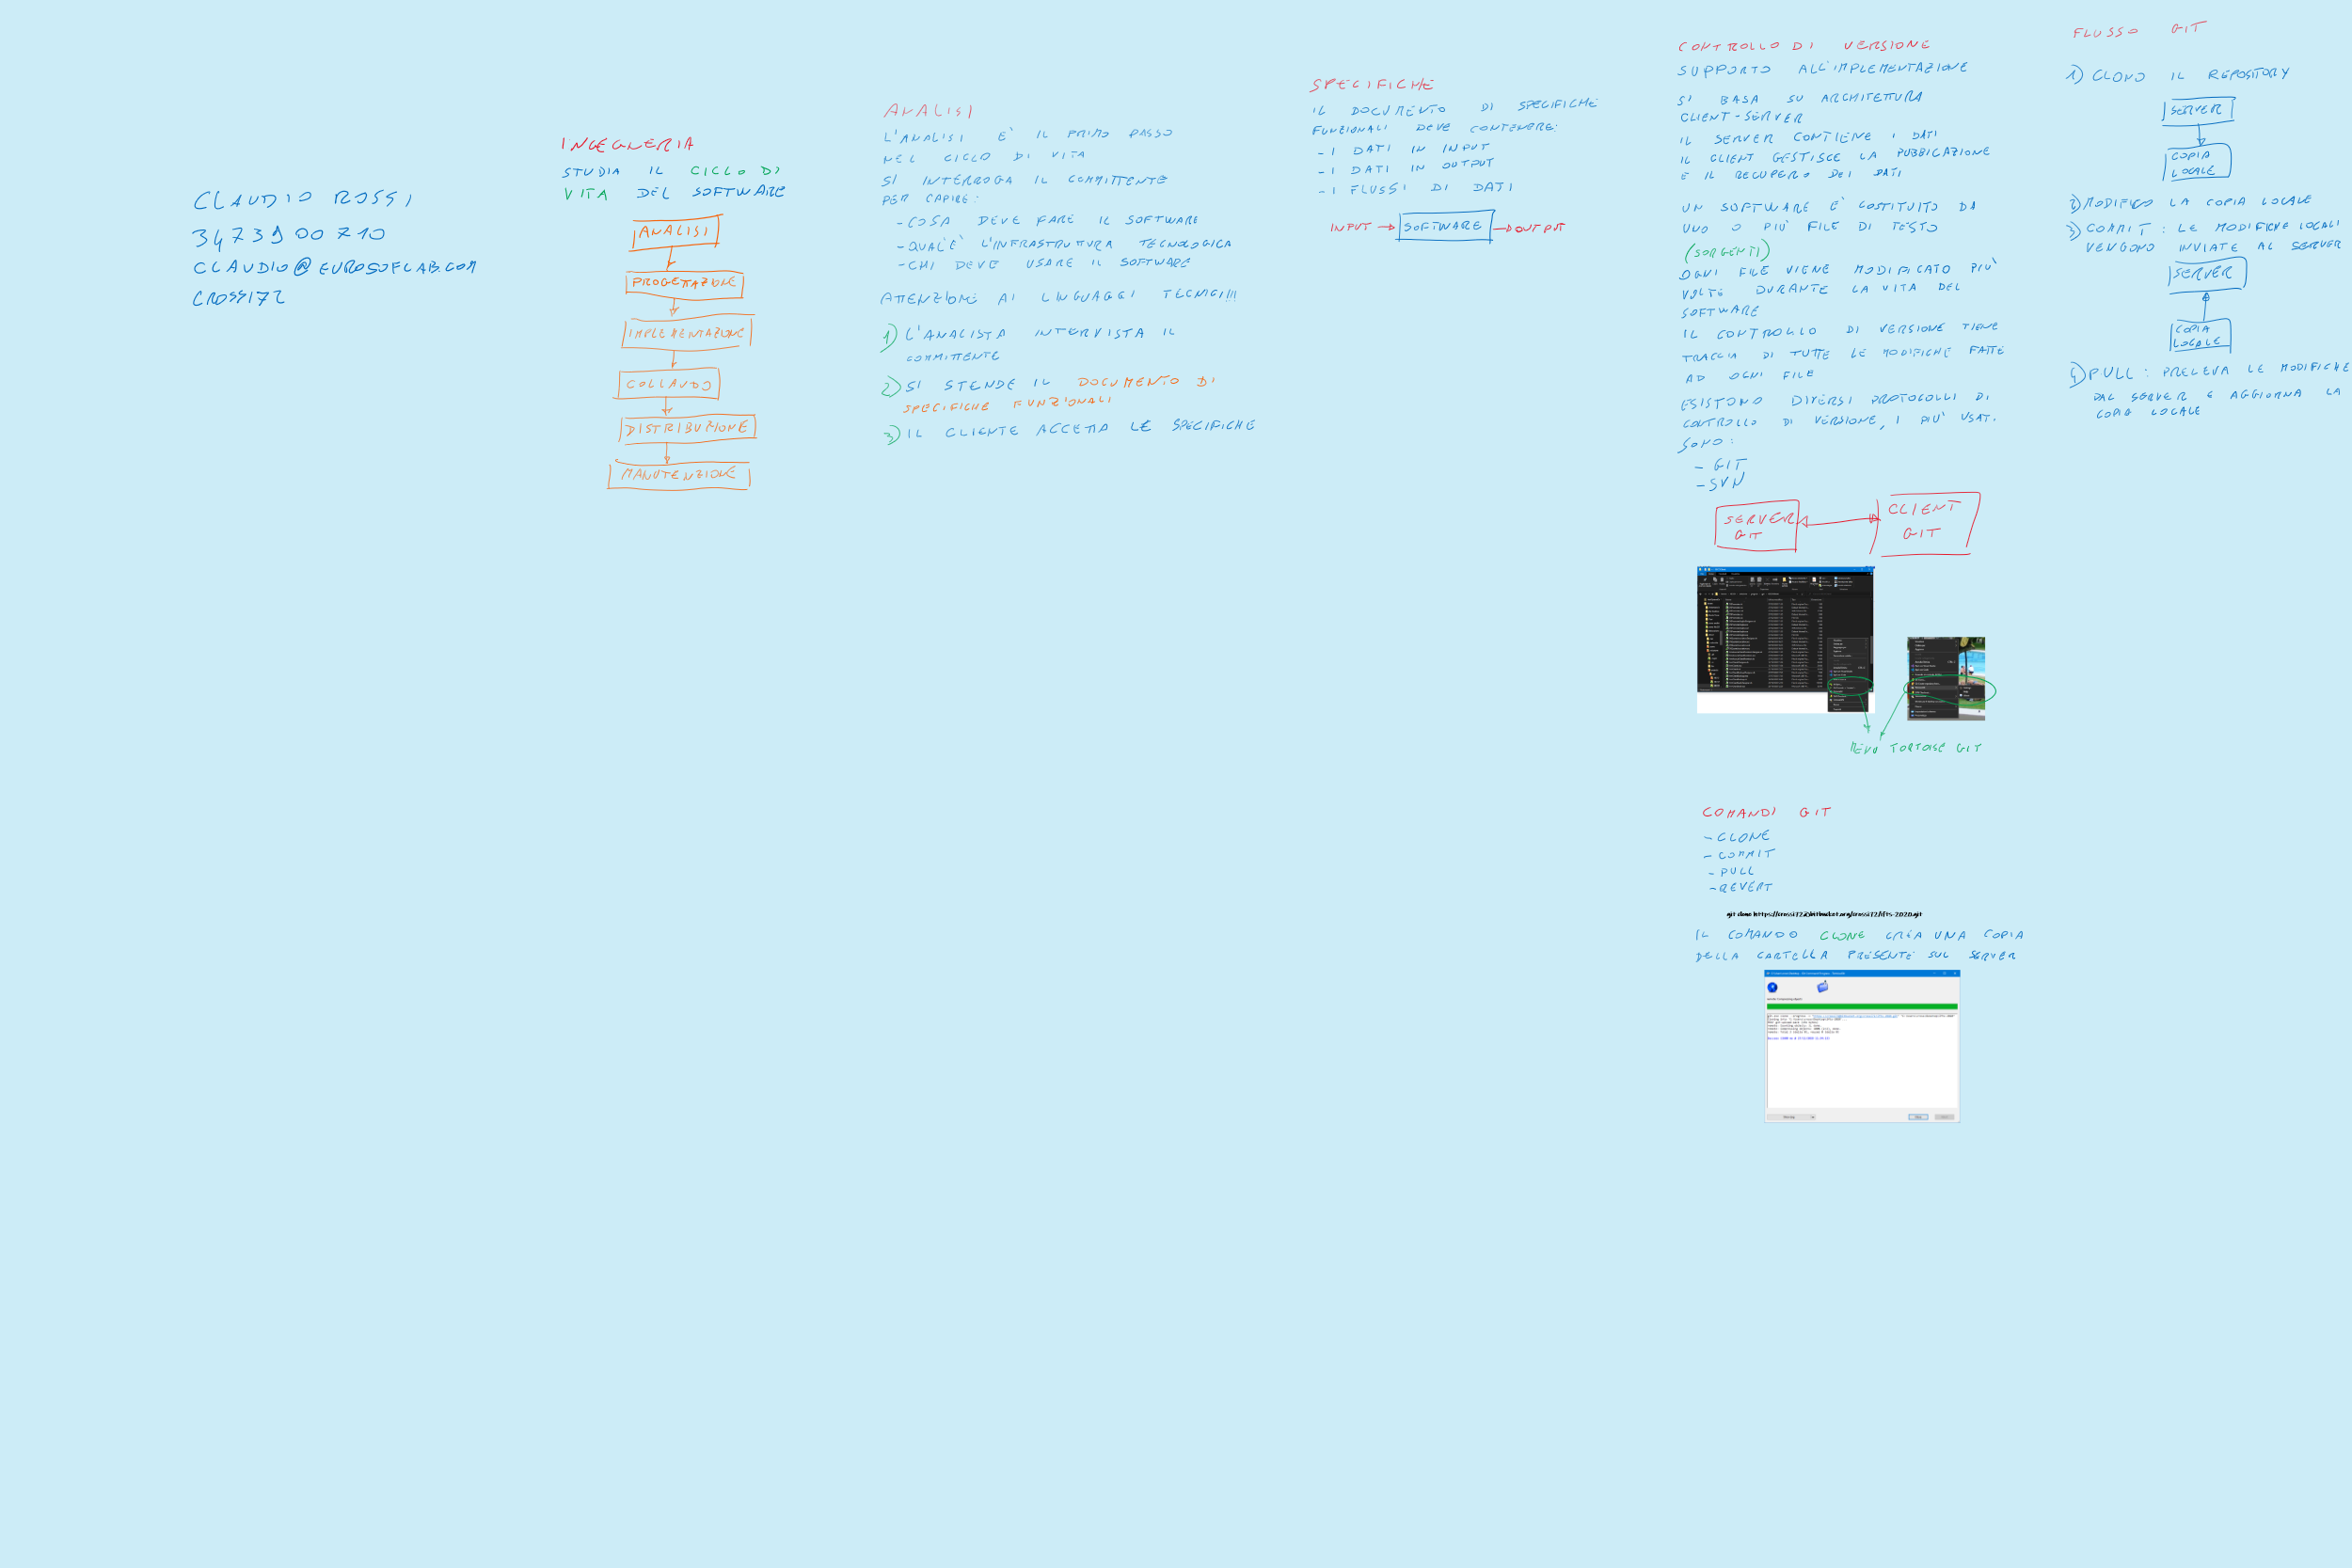 CLAUDIO ROSSI
3473900710
CLAUDIO@EUROSOFLAB.COM
CROSSI72
INGEGNERIA
STUDIA IL CICLO DI
VITA DEL SOFTWARE
ANALISI
PROGETTAZIONE
IMPLEMENTAZIONE
COLLAUDO
DISTRIBUZIONE
MANUTENZIONE
ANALISI
L'ANALISI E' IL PRIMO PASSO
NEL CICLO DI VITA
SI INTERROGA IL COMMITTENTE
PER CAPIRE:
- COSA DEVE FARE IL SOFTWARE
- QUAL'E' L'INFRASTRUTTURA TECNOLOGICA
- CHI DEVE USARE IL SOFTWARE
ATTENZIONE AI LINGUAGGI TECNICI!!!
1) L'ANALISTA INTERVISTA IL
COMMITTENTE
2) SI STENDE IL DOCUMENTO DI
SPECIFICHE FUNZIONALI
3) IL CLIENTE ACCETTA LE SPECIFICHE
SPECIFICHE
IL DOCUMENTO DI SPECIFICHE
FUNZIONALI DEVE CONTENERE:
- I DATI IN INPUT
- I DATI IN OUTPUT
- I FLUSSI DI DATI
INPUT SOFTWARE OUTPUT
CONTROLLO DI VERSIONE
SUPPORTO ALL'IMPLEMENTAZIONE
SI BASA SU ARCHITETTURA
CLIENT-SERVER
IL SERVER CONTIENE I DATI
IL CLIENT GESTISCE LA PUBBICAZIONE
E IL RECUPERO DEI DATI
UN SOFTWARE E' COSTITUITO DA
UNO O PIU' FILE DI TESTO
(SORGENTI)
OGNI FILE VIENE MODIFICATO PIU'
VOLTE DURANTE LA VITA DEL
SOFTWARE
IL CONTROLLO DI VERSIONE TIENE
TRACCIA DI TUTTE LE MODIFICHE FATTE
AD OGNI FILE
ESISTONO DIVERSI PROTOCOLLI DI
CONTROLLO DI VERSIONE, I PIU' USATI
SONO:
- GIT
- SVN
SERVER
GIT
CLIENT
GIT
MENU TORTOISE GIT
COMANDI GIT
- CLONE
- COMMIT
- PULL
- REVERT
git clone https://crossi72@bitbucket.org/crossi72/ifts-2020.git
IL COMANDO CLONE CREA UNA COPIA
DELLA CARTELLA PRESENTE SUL SERVER
FLUSSO GIT
1) CLONO IL REPOSITORY
SERVER
COPIA
LOCALE
2) MODIFICO LA COPIA LOCALE
3) COMMIT: LE MODIFICHE LOCALI
VENGONO INVIATE AL SERVER
SERVER
COPIA
LOCALE
4) PULL: PRELEVA LE MODIFICHE
DAL SERVER E AGGIORNA LA
COPIA LOCALE